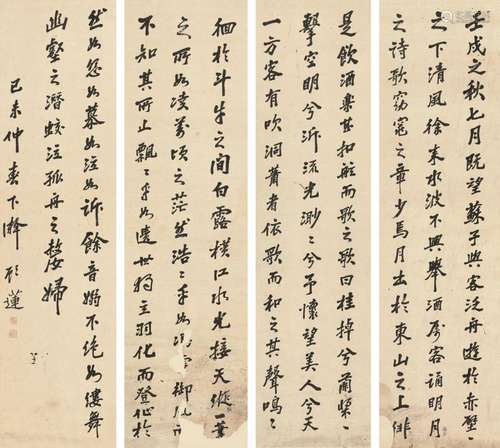 壬戌之秋七月既望蘇子與客泛舟遊於赤壁
之下清風徐來水波不興舉酒屬客誦明月
之詩歌窈窕之章少焉月出於東山之上徘
是飲酒樂甚扣舷而歌之歌曰桂棹兮蘭槳
擊空明兮泝流光渺〻兮予懷望美人兮天
一方客有吹洞簫者依歌而和之其聲嗚〻
徊於斗牛之間白露橫江水光接天縱一葦
之所如凌萬頃之茫然浩〻乎如馮御風
不知其所止飄〻乎如遺世獨立羽化而登仙於
然如怨如慕如泣如訴餘音嫋不絕如縷舞
幽壑之潛蛟泣孤舟之嫠婦
己未仲春下澣 顧蓮